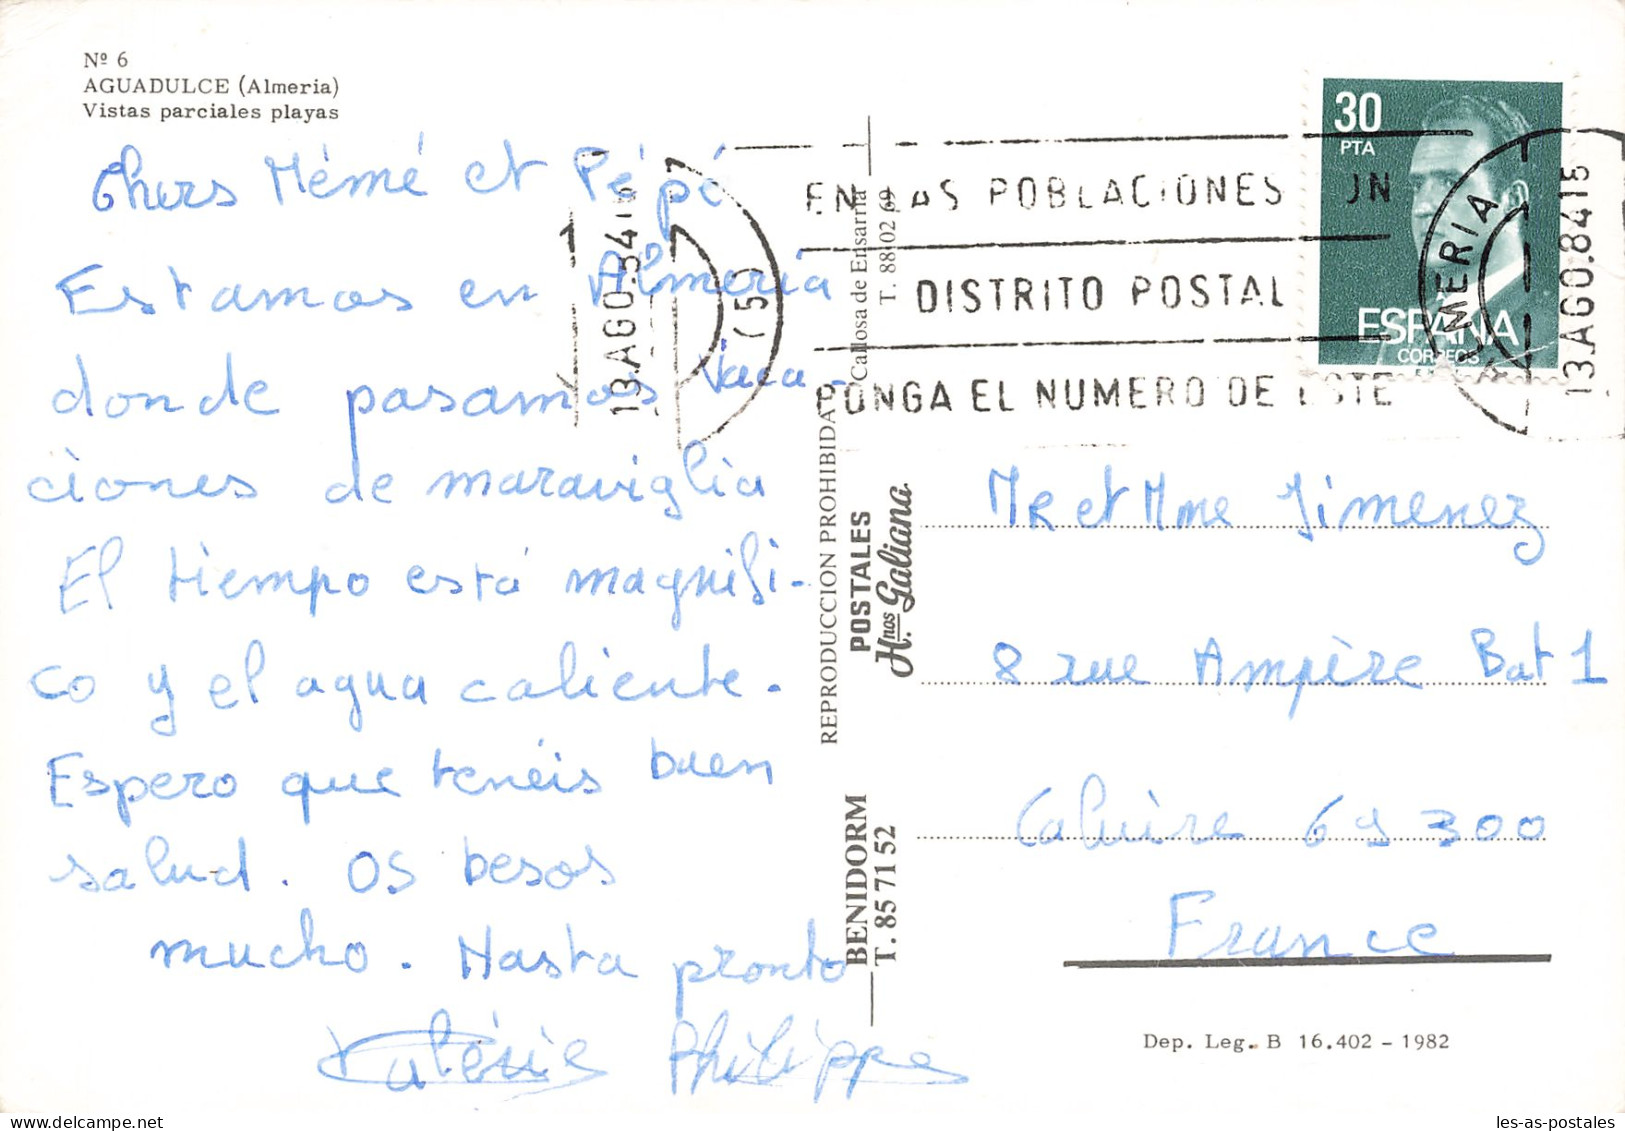 Nº 6
AGUADULCE (Almeria)
Vistas parciales playas
Chers Mémé et Pépé
Estamos en Almería
donde pasamos vaca-
ciones de maraviglia
El tiempo está magnifi-
co y el agua caliente.
Espero que tenéis buen
salud. OS besos
mucho. Hasta pronto
Valérie Philippe
13.AGO.84 16
(5)
Callosa de Ensarria
T. 88 02 69
REPRODUCCION PROHIBIDA
POSTALES
H.nos Galiana
BENIDORM
T. 85 71 52
EN LAS POBLACIONES
DISTRITO POSTAL
PONGA EL NUMERO DE ESTE
30
PTA
ESPAÑA
CORREOS
ALMERIA
13.AGO.84 15
MR et Mme Jimenez
8 rue Ampère Bat 1
Caluire 69 300
France
Dep. Leg. B 16.402 - 1982
delcampe.net
les-as-postales